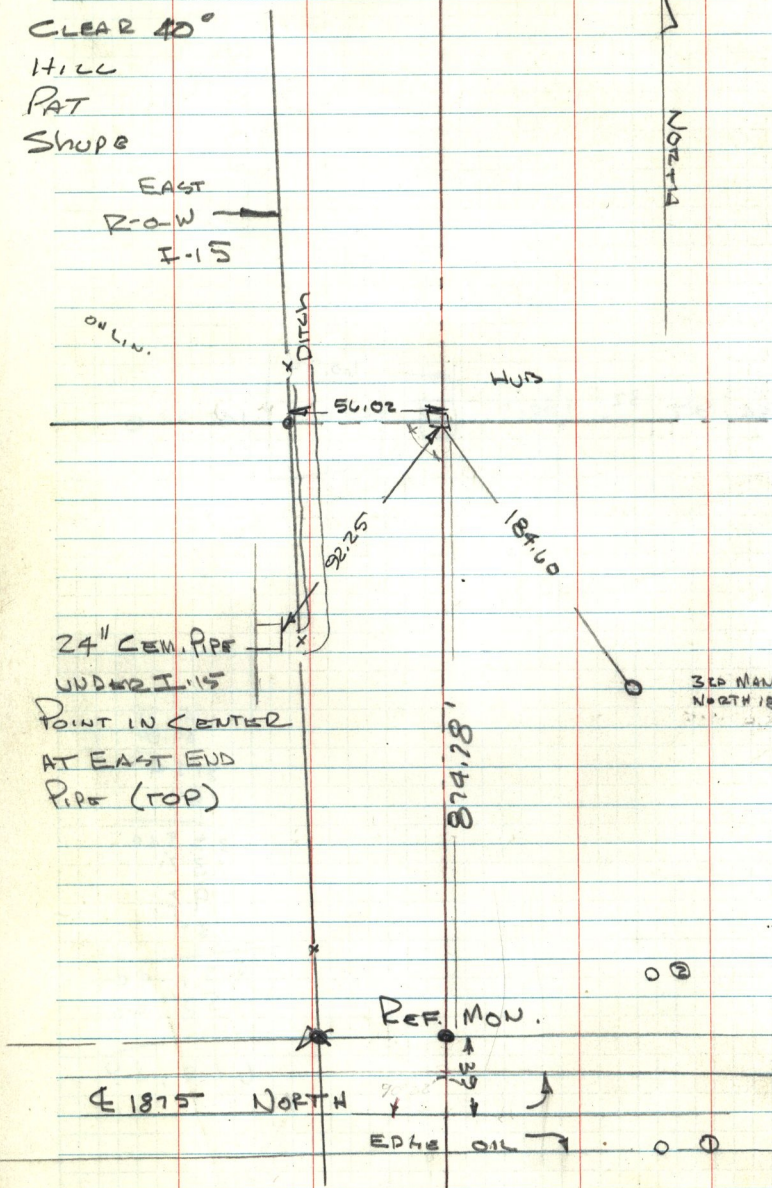 CLEAR 40°
HILL
PAT
SHUPE
NORTH
EAST
R-O-W
I-15
ON LIN.
DITCH
HUB
56.02
92.25
184.60
24" CEM. PIPE
UNDER I-15
POINT IN CENTER
AT EAST END
PIPE (TOP)
3RD MAN
NORTH 18
874.28'
②
REF. MON.
39
℄ 1875 NORTH
EDGE OIL
①